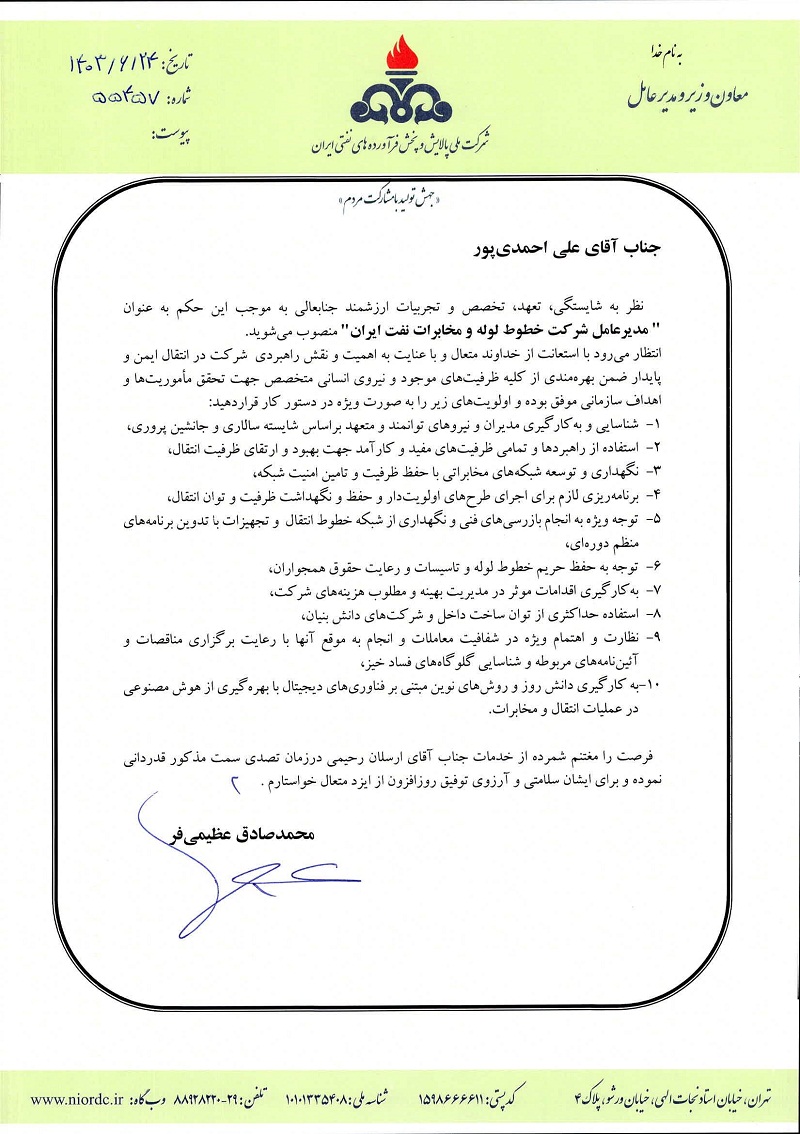 به نام خدا
معاون وزیر و مدیر عامل
شرکت ملی پالایش و پخش فرآورده های نفتی ایران
تاریخ: ۱۴۰۳/۶/۲۴
شماره: ۵۵۴۵۷
پیوست:
«جهش تولید با مشارکت مردم»
جناب آقای علی احمدی‌پور
نظر به شایستگی، تعهد، تخصص و تجربیات ارزشمند جنابعالی به موجب این حکم به عنوان
" مدیرعامل شرکت خطوط لوله و مخابرات نفت ایران" منصوب می‌شوید.
انتظار می‌رود با استعانت از خداوند متعال و با عنایت به اهمیت و نقش راهبردی شرکت در انتقال ایمن و
پایدار ضمن بهره‌مندی از کلیه ظرفیت‌های موجود و نیروی انسانی متخصص جهت تحقق مأموریت‌ها و
اهداف سازمانی موفق بوده و اولویت‌های زیر را به صورت ویژه در دستور کار قراردهید:
۱- شناسایی و به‌کارگیری مدیران و نیروهای توانمند و متعهد براساس شایسته سالاری و جانشین پروری،
۲- استفاده از راهبردها و تمامی ظرفیت‌های مفید و کارآمد جهت بهبود و ارتقای ظرفیت انتقال،
۳- نگهداری و توسعه شبکه‌های مخابراتی با حفظ ظرفیت و تامین امنیت شبکه،
۴- برنامه‌ریزی لازم برای اجرای طرح‌های اولویت‌دار و حفظ و نگهداشت ظرفیت و توان انتقال،
۵- توجه ویژه به انجام بازرسی‌های فنی و نگهداری از شبکه خطوط انتقال و تجهیزات با تدوین برنامه‌های
منظم دوره‌ای،
۶- توجه به حفظ حریم خطوط لوله و تاسیسات و رعایت حقوق همجواران،
۷- به‌کارگیری اقدامات موثر در مدیریت بهینه و مطلوب هزینه‌های شرکت،
۸- استفاده حداکثری از توان ساخت داخل و شرکت‌های دانش بنیان،
۹- نظارت و اهتمام ویژه در شفافیت معاملات و انجام به موقع آنها با رعایت برگزاری مناقصات و
آئین‌نامه‌های مربوطه و شناسایی گلوگاه‌های فساد خیز،
۱۰-به کارگیری دانش روز و روش‌های نوین مبتنی بر فناوری‌های دیجیتال با بهره‌گیری از هوش مصنوعی
در عملیات انتقال و مخابرات.
فرصت را مغتنم شمرده از خدمات جناب آقای ارسلان رحیمی درزمان تصدی سمت مذکور قدردانی
نموده و برای ایشان سلامتی و آرزوی توفیق روزافزون از ایزد متعال خواستارم .
محمدصادق عظیمی‌فر
تهران، خیابان استاد نجات الهی، خیابان ورشو، پلاک ۴ کد پستی: ۱۵۹۸۶۶۶۶۱۱ شناسه ملی: ۱۰۱۰۱۳۳۵۴۰۸ تلفن: ۲۹-۸۸۹۲۸۲۲۰ وب گاه: www.niordc.ir